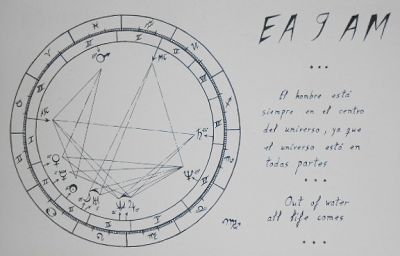 EA 9 AM
* * *
El hombre está
siempre en el centro
del universo, ya que
el universo está en
todas partes
* * *
Out of water
all life comes
* * *